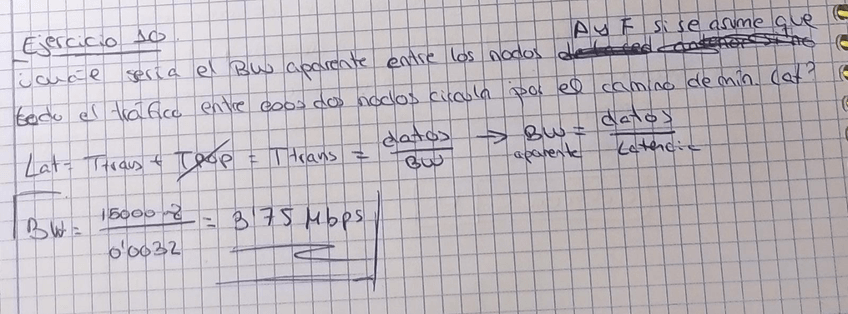 Ejercicio 10
A y F si se asume que
¿Cuál e sería el BW aparente entre los nodos
todo el tráfico entre esos dos nodos circula por el camino de min. lat?
Lat = Ttrans + Tprop = Ttrans = datos / BW → BW aparente = datos / Latencia
BW = 15000·8 / 0'0032 = 3'75 Mbps